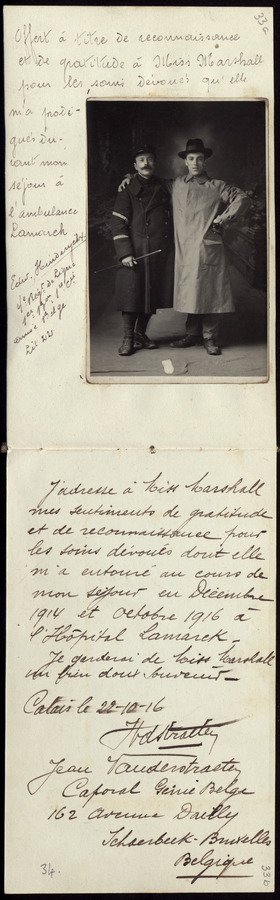 33a
Offert à titre de reconnaissance
et de gratitude à Miss Marshall
pour les soins dévoués qu'elle
m'a prodi-
gués du-
rant mon
séjour à
l'ambulance
Lamarck
Edw.
4e Régt de Ligne
1er 
armée Belge
Lit 22
J'adresse à Miss Marshall
mes sentiments de gratitude
et de reconnaissance pour
les soins dévoués dont elle
m'a entouré au cours de
mon séjour en Décembre
1914 et Octobre 1916 à
l'Hôpital Lamarck_
Je garderai de Miss Marshall
un bien doux souvenir_
Calais le 22-10-16
Jean Vanderstraeten
Caporal Génie Belge
162 avenue Dailly
Schaerbeek-Bruxelles
Belgique
34.
33b